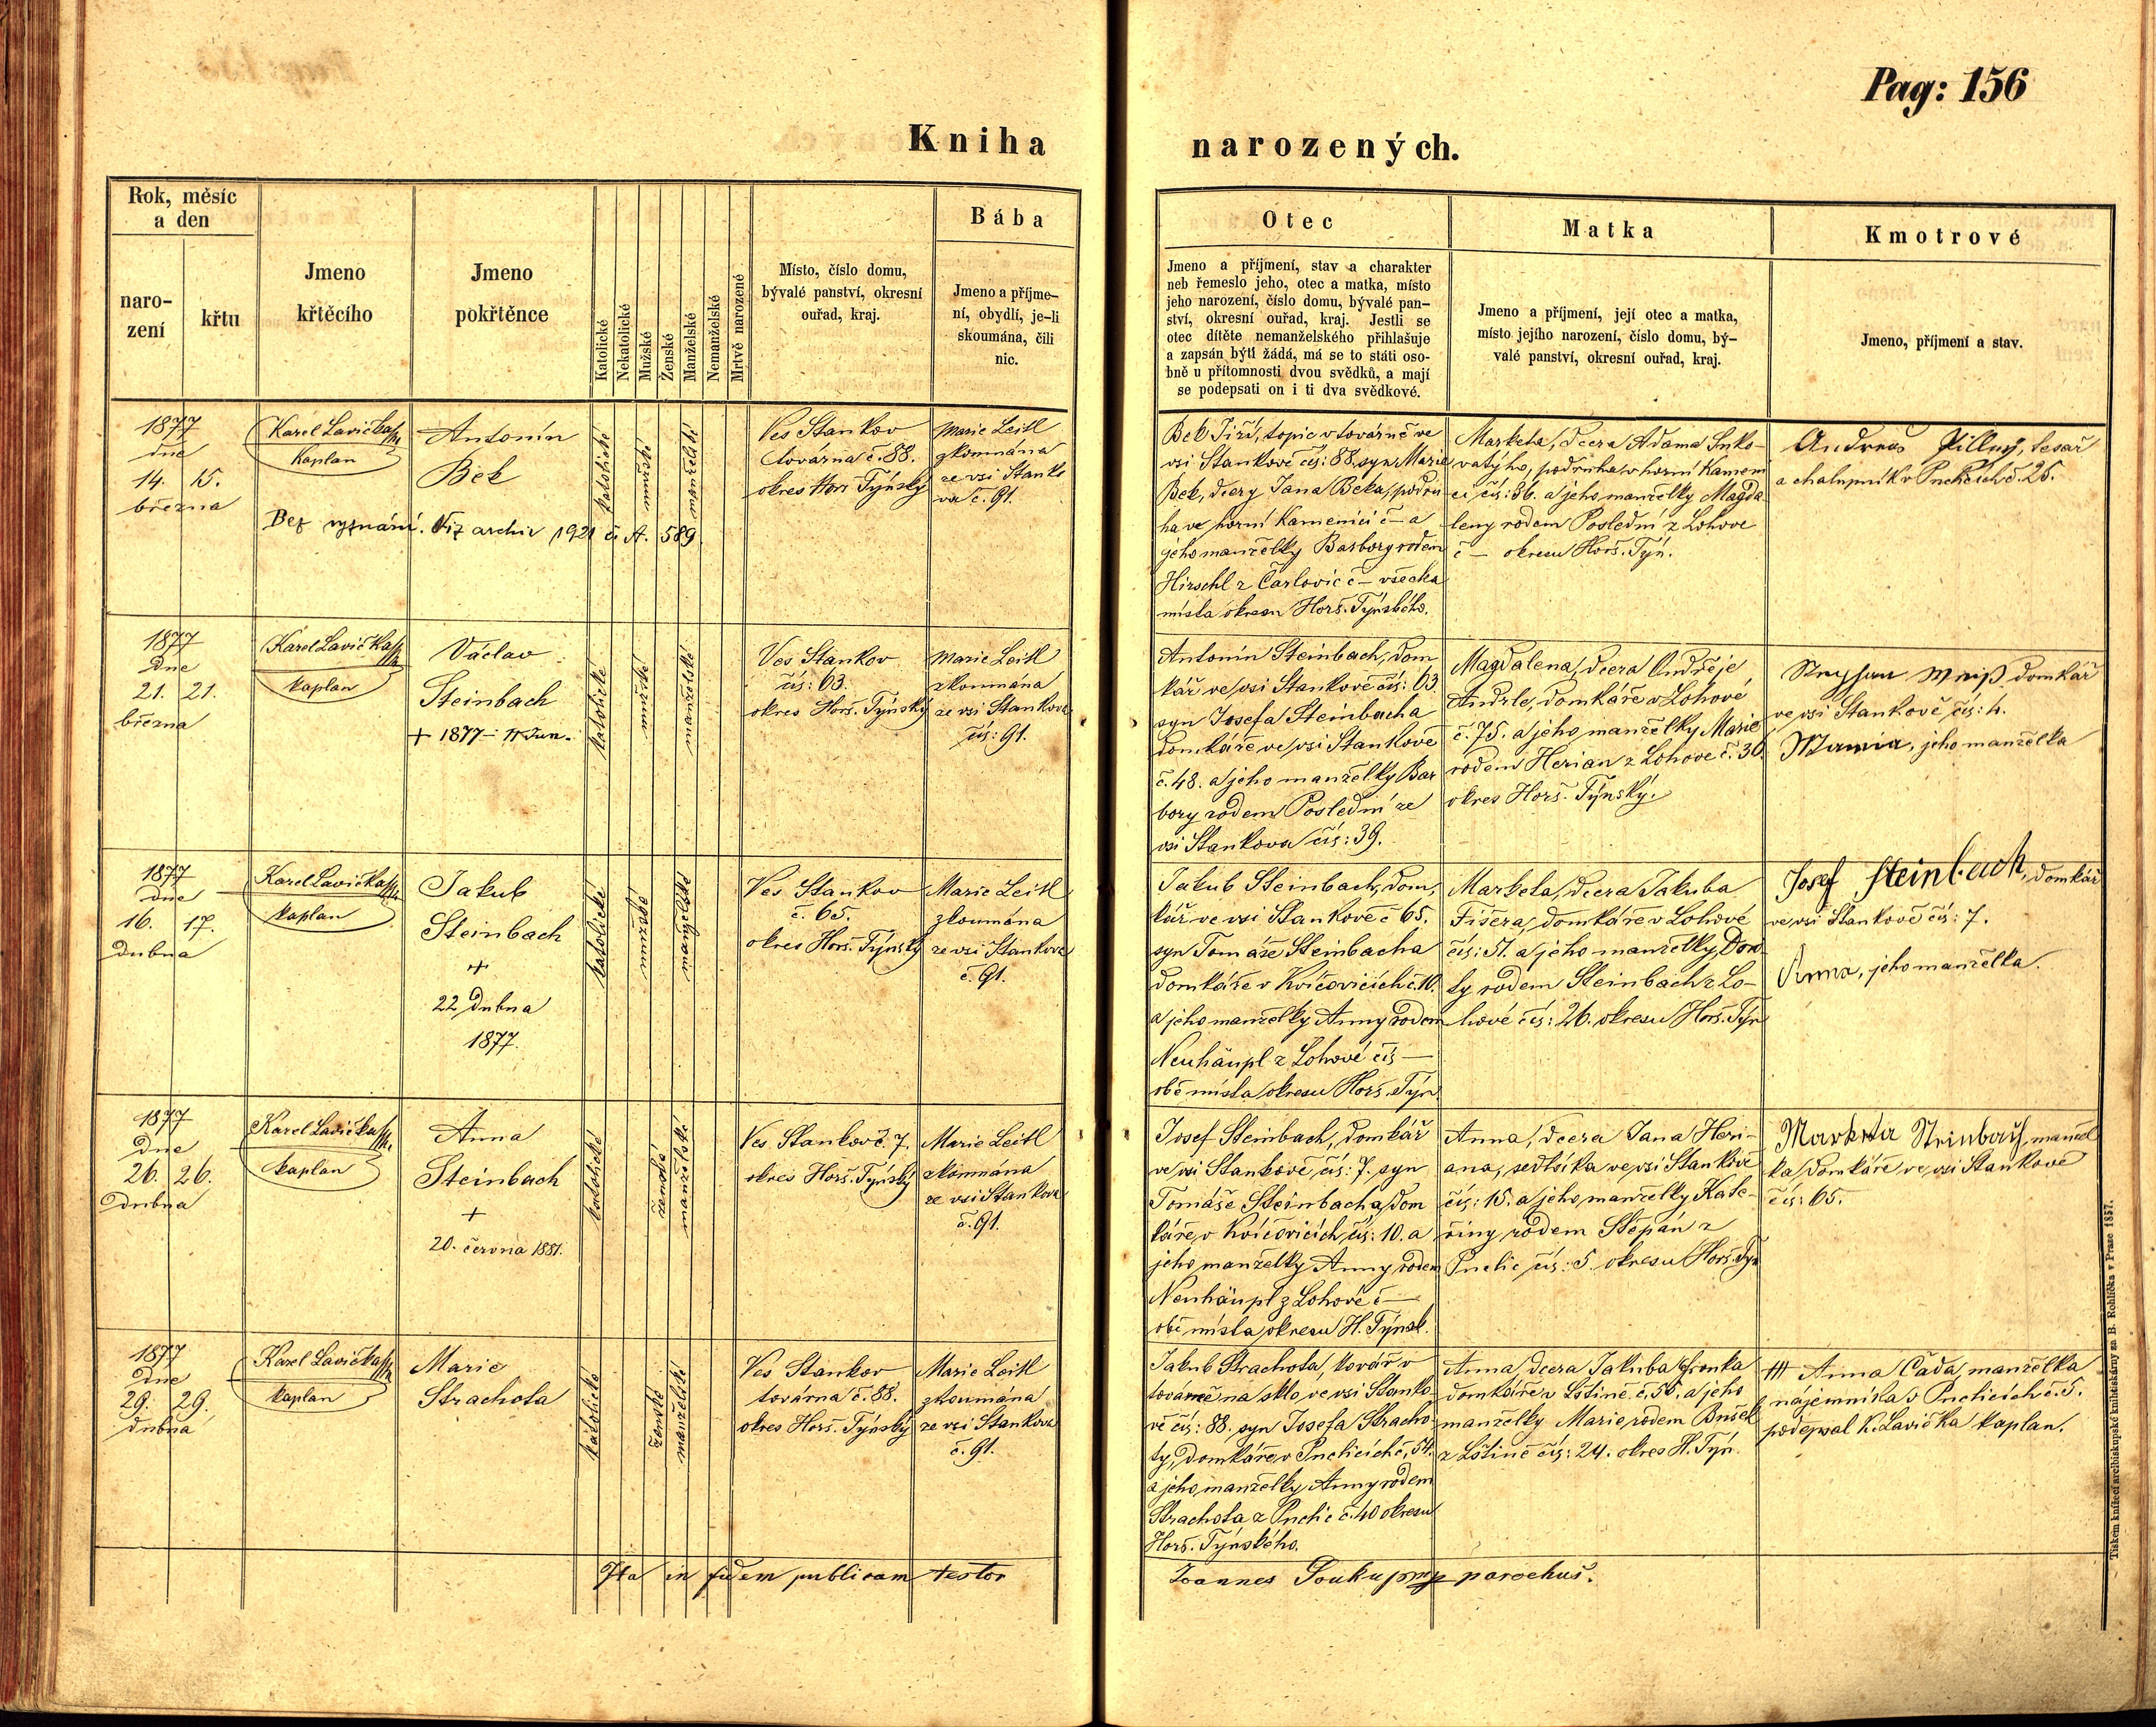 Pag: 156
Kniha narozených.
Rok, měsíc
a den
naro-
zení
křtu
Jmeno
křtěcího
Jmeno
pokřtěnce
Katolické
Nekatolické
Mužské
Ženské
Manželské
Nemanželské
Mrtvě narozené
Místo, číslo domu,
bývalé panství, okresní
ouřad, kraj.
Bába
Jmeno a příjme-
ní, obydlí, je-li
skoumána, čili
nic.
Otec
Jmeno a příjmení, stav a charakter
neb řemeslo jeho, otec a matka, místo
jeho narození, číslo domu, bývalé pan-
ství, okresní ouřad, kraj. Jestli se
otec dítěte nemanželského přihlašuje
a zapsán býti žádá, má se to státi oso-
bně u přítomnosti dvou svědků, a mají
se podepsati on i ti dva svědkové.
Matka
Jmeno a příjmení, její otec a matka,
místo jejího narození, číslo domu, bý-
valé panství, okresní ouřad, kraj.
Kmotrové
Jmeno, příjmení a stav.
1877
dne
14. 15.
března
Karel Lavička
kaplan
Antonín
Bek
Bez vyznání. Viz archiv 1921 č. A. 589
katolické
mužské
manželské
Ves Stankov
továrna č. 88.
okres Horš. Týnský
Marie Leitl
zkoumána
ze vsi Stanko
va č. 91.
Bek Jiří, topič v továrně ve
vsi Stankově čís: 88. syn Marie
Bek, dcery Jana Beka, podru
ha ve horní Kamenici č – a
jeho manželky Barbory rodem
Hirschl z Čarlovic č – všecka
místa okresu Horš. Týnského.
Marketa, dcera Adama
podruha v horní Kameni
ci čís: 36. a jeho manželky Magda
leny rodem Poslední z Lohove
č – okresu Horš. Týn.
Andreas Pillný, tesař
a chalupník v Puclicích č. 25.
1877
dne
21. 21.
března
Karel Lavička
kaplan
Václav
Steinbach
+ 1877 – 11 Jun.
katolické
mužské
manželské
Ves Stankov
čís: 63.
okres Horš. Týnský
Marie Leitl
zkoumána
ze vsi Stankova
čís: 91.
Antonín Steinbach, dom
kář ve vsi Stankově čís: 63
syn Josefa Steinbacha
domkáře ve vsi Stankově
č. 48. a jeho manželky Bar
bory rodem Poslední ze
vsi Stankova čís: 39.
Magdalena, dcera Ondřeje
Andrle, domkáře v Lohové
č. 75. a jeho manželky Marie
rodem Herian z Lohove č. 36.
okres Horš. Týnský.
domkář
ve vsi Stankově čís: 4.
jeho manželka
1877
dne
16. 17.
dubna
Karel Lavička
kaplan
Jakub
Steinbach
+
22 dubna
1877.
katolické
mužské
manželské
Ves Stankov
č. 65.
okres Horš. Týnský
Marie Leitl
zkoumána
ze vsi Stankova
č. 91.
Jakub Steinbach, dom,
kář ve vsi Stankově č 65.
syn Tomáše Steinbacha
domkáře v Kvíčovicích č. 10.
a jeho manželky Anny rodem
Neuhäupl z Lohové čís –
obě místa okresu Horš. Týn
Markela, dcera Jakuba
Fišera, domkáře v Lohové
čís: 51. a jeho manželky Dor
ty rodem Steinbach z Lo-
hové čís: 26. okresu Horš. Týn
Josef Steinbach, domkář
ve vsi Stankově čís: 7.
Anna, jeho manželka.
1877
dne
26. 26.
dubna
Karel Lavička
kaplan
Anna
Steinbach
+
20. června 1881.
katolické
ženské
manželské
Ves Stankov č. 7.
okres Horš. Týnský
Marie Leitl
zkoumána
ze vsi Stankova
č. 91.
Josef Steinbach, domkář
ve vsi Stankově čís: 7. syn
Tomáše Steinbacha, dom
káře v Kvíčovicích, čís: 10. a
jeho manželky Anny rodem
Neuhäupl z Lohové č –
obě místa okresu H. Týnsk.
Anna, dcera Jana Heri-
ana, sedláka ve vsi Stankově
čís: 15. a jeho manželky Kate-
řiny rodem Štěpán z
Puclic čís: 5. okresu Horš. Týn
Marketa Steinbach, manžel
ka domkáře ve vsi Stankově
čís: 65.
1877
dne
29. 29.
dubna
Karel Lavička
kaplan
Marie
Strachota
katolické
ženské
manželské
Ves Stankov
továrna č. 88.
okres Horš. Týnský
Marie Leitl
zkoumána
ze vsi Stankova
č. 91.
Jakub Strachota, kovář v
továrně na sklo, ve vsi Stanko-
vě čís: 88. syn Josefa Stracho
ty, domkáře v Puclicích č. 54.
a jeho manželky Anny rodem
Strachota z Puclic č. 40 okresu
Horš. Týnského.
Anna, dcera Jakuba Gronka
domkáře v Lštině č. 50. a jeho
manželky Marie, rodem Bušek
z Lštině čís: 24. okres H. Týn.
+++ Anna Čada, manželka
nájemníka v Puclicích č. 5.
podepsal K. Lavička kaplan.
Ita in fidem publicam testor
Joannes Soukup mp parochus.
Tiskem knížecí arcibiskupské knihtiskárny za B. Rohlíčka v Praze 1857.